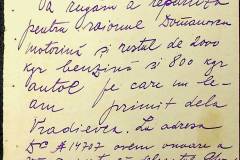 Vă rugăm a repartiza
pentru raionul Domanovca
motorină și restul de 2000
kgr benzină si 800 kgr
autol pe care nu le-
am primit dela
Vradievca. La adresa
DC A 14707 avem onoarea a